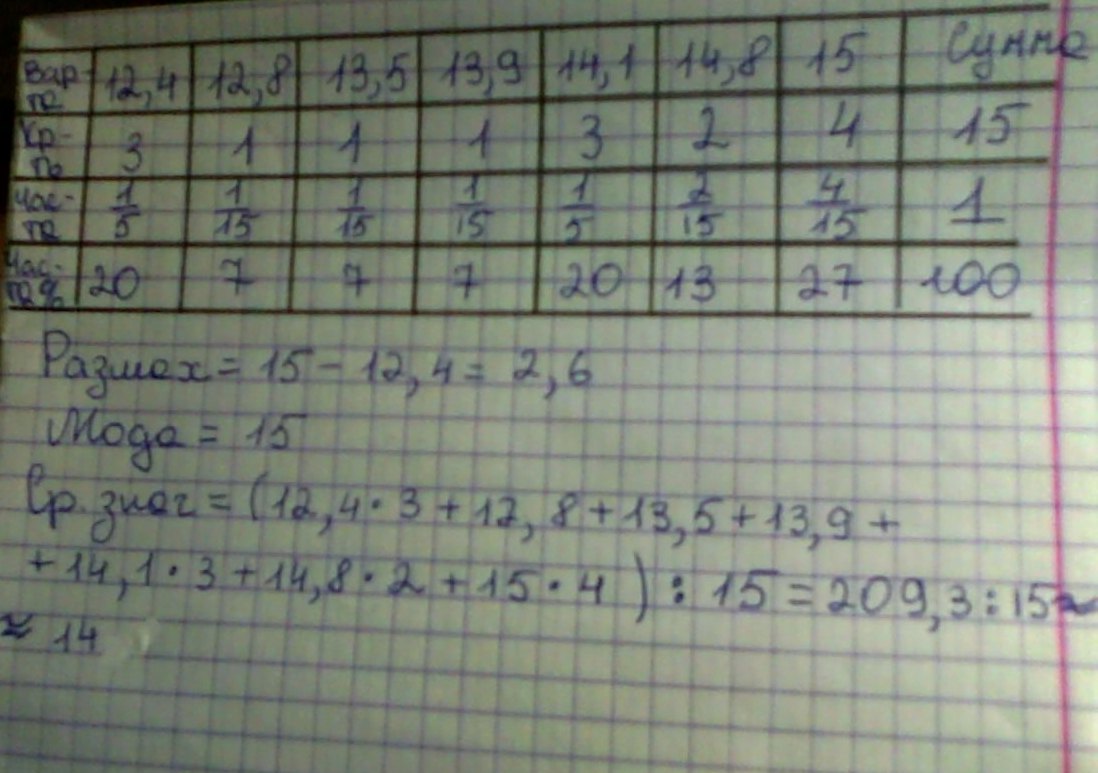 Вар-та 12,4 12,8 13,5 13,9 14,1 14,8 15 Сумма
Кр-ть 3 1 1 1 3 2 4 15
Час-та 1/5 1/15 1/15 1/15 1/5 2/15 4/15 1
Час-та % 20 7 7 7 20 13 27 100
Размах = 15 - 12,4 = 2,6
Мода = 15
Ср. знач = (12,4 · 3 + 12,8 + 13,5 + 13,9 +
+ 14,1 · 3 + 14,8 · 2 + 15 · 4) : 15 = 209,3 : 15 ≈
≈ 14